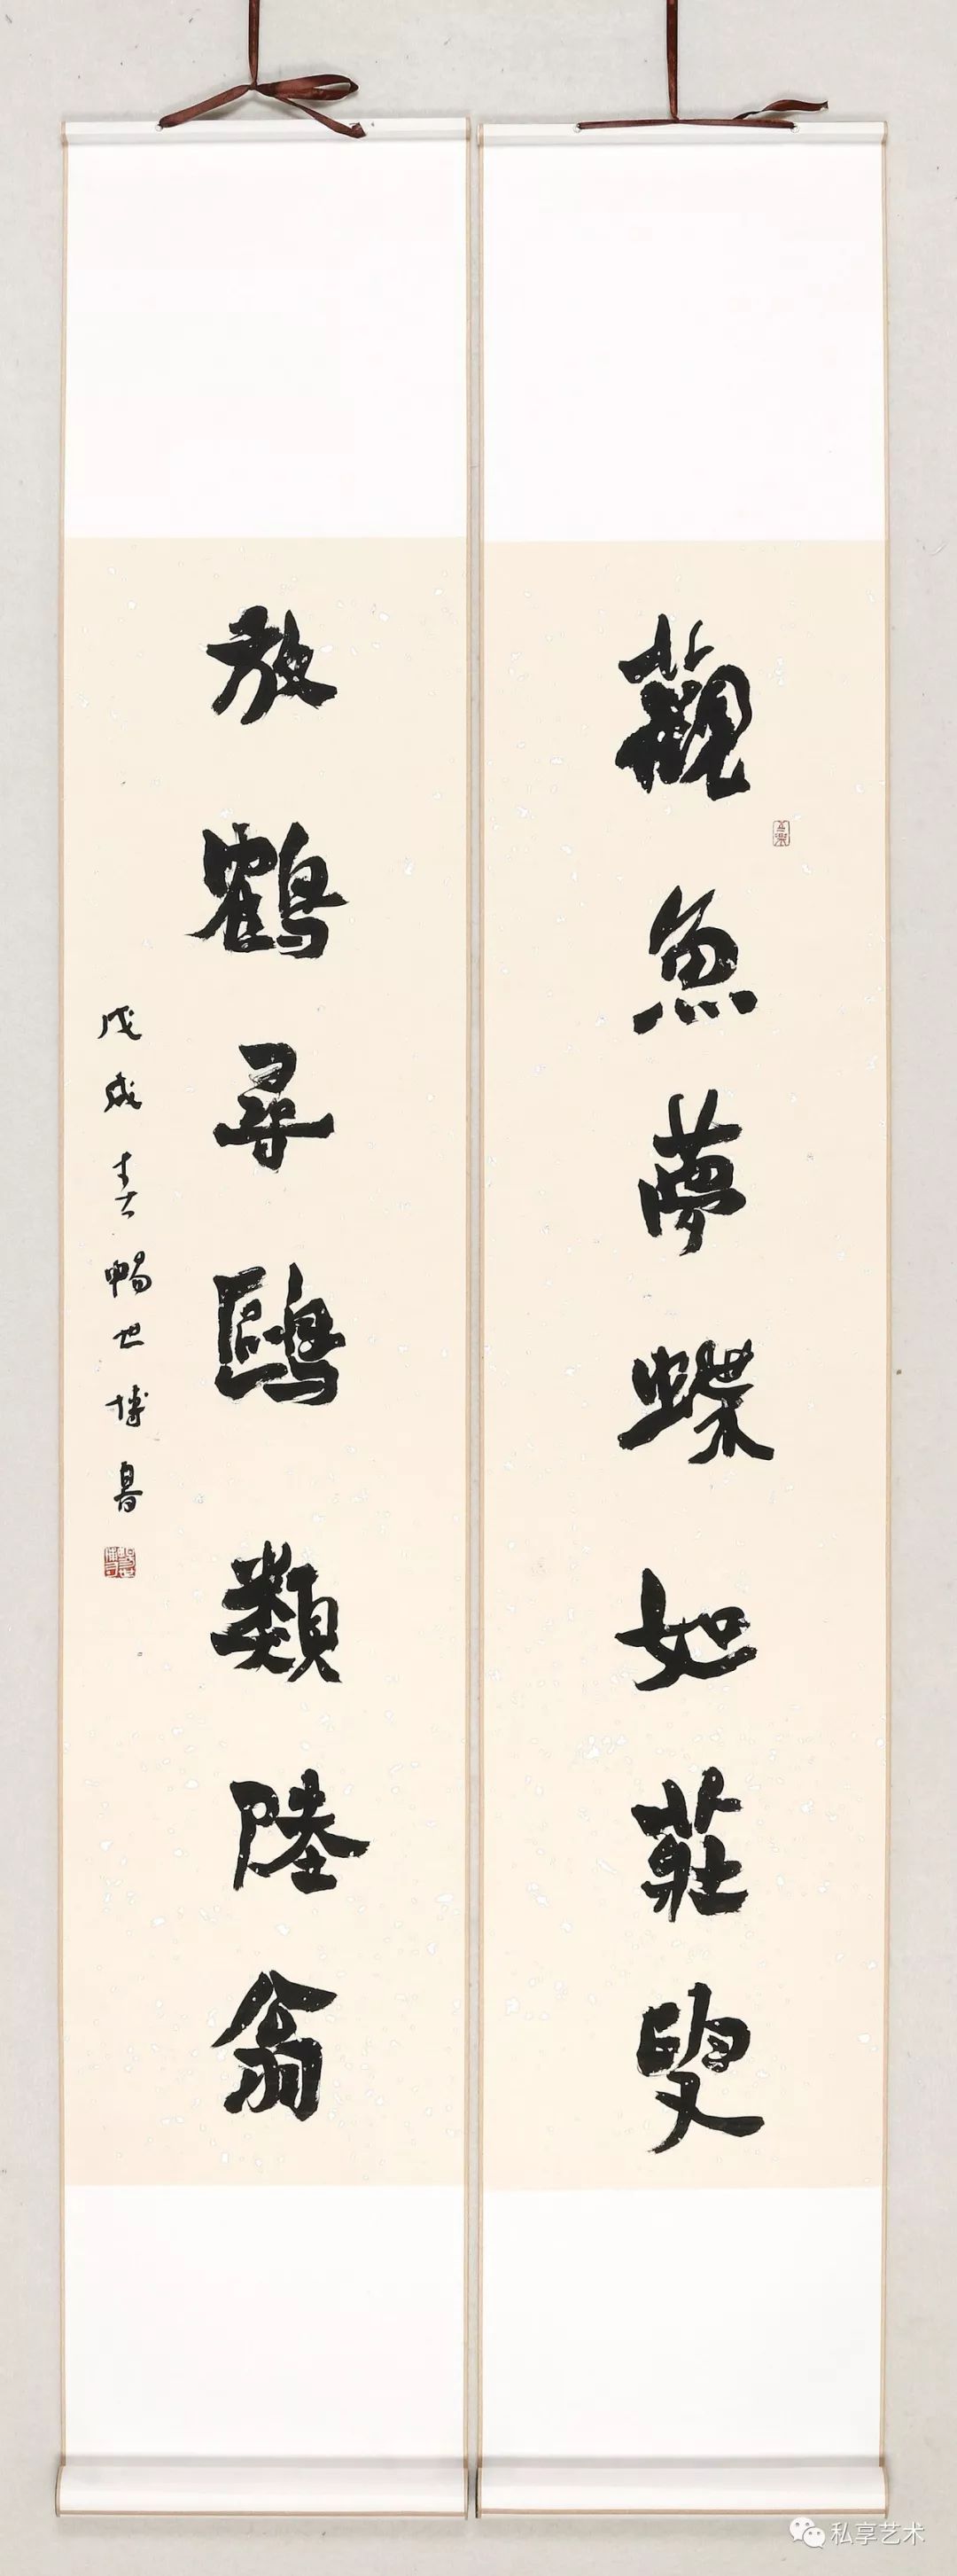 觀魚夢蝶如莊叟
放鶴尋鷗類陸翁
戊戌春暢世博書
私享艺术